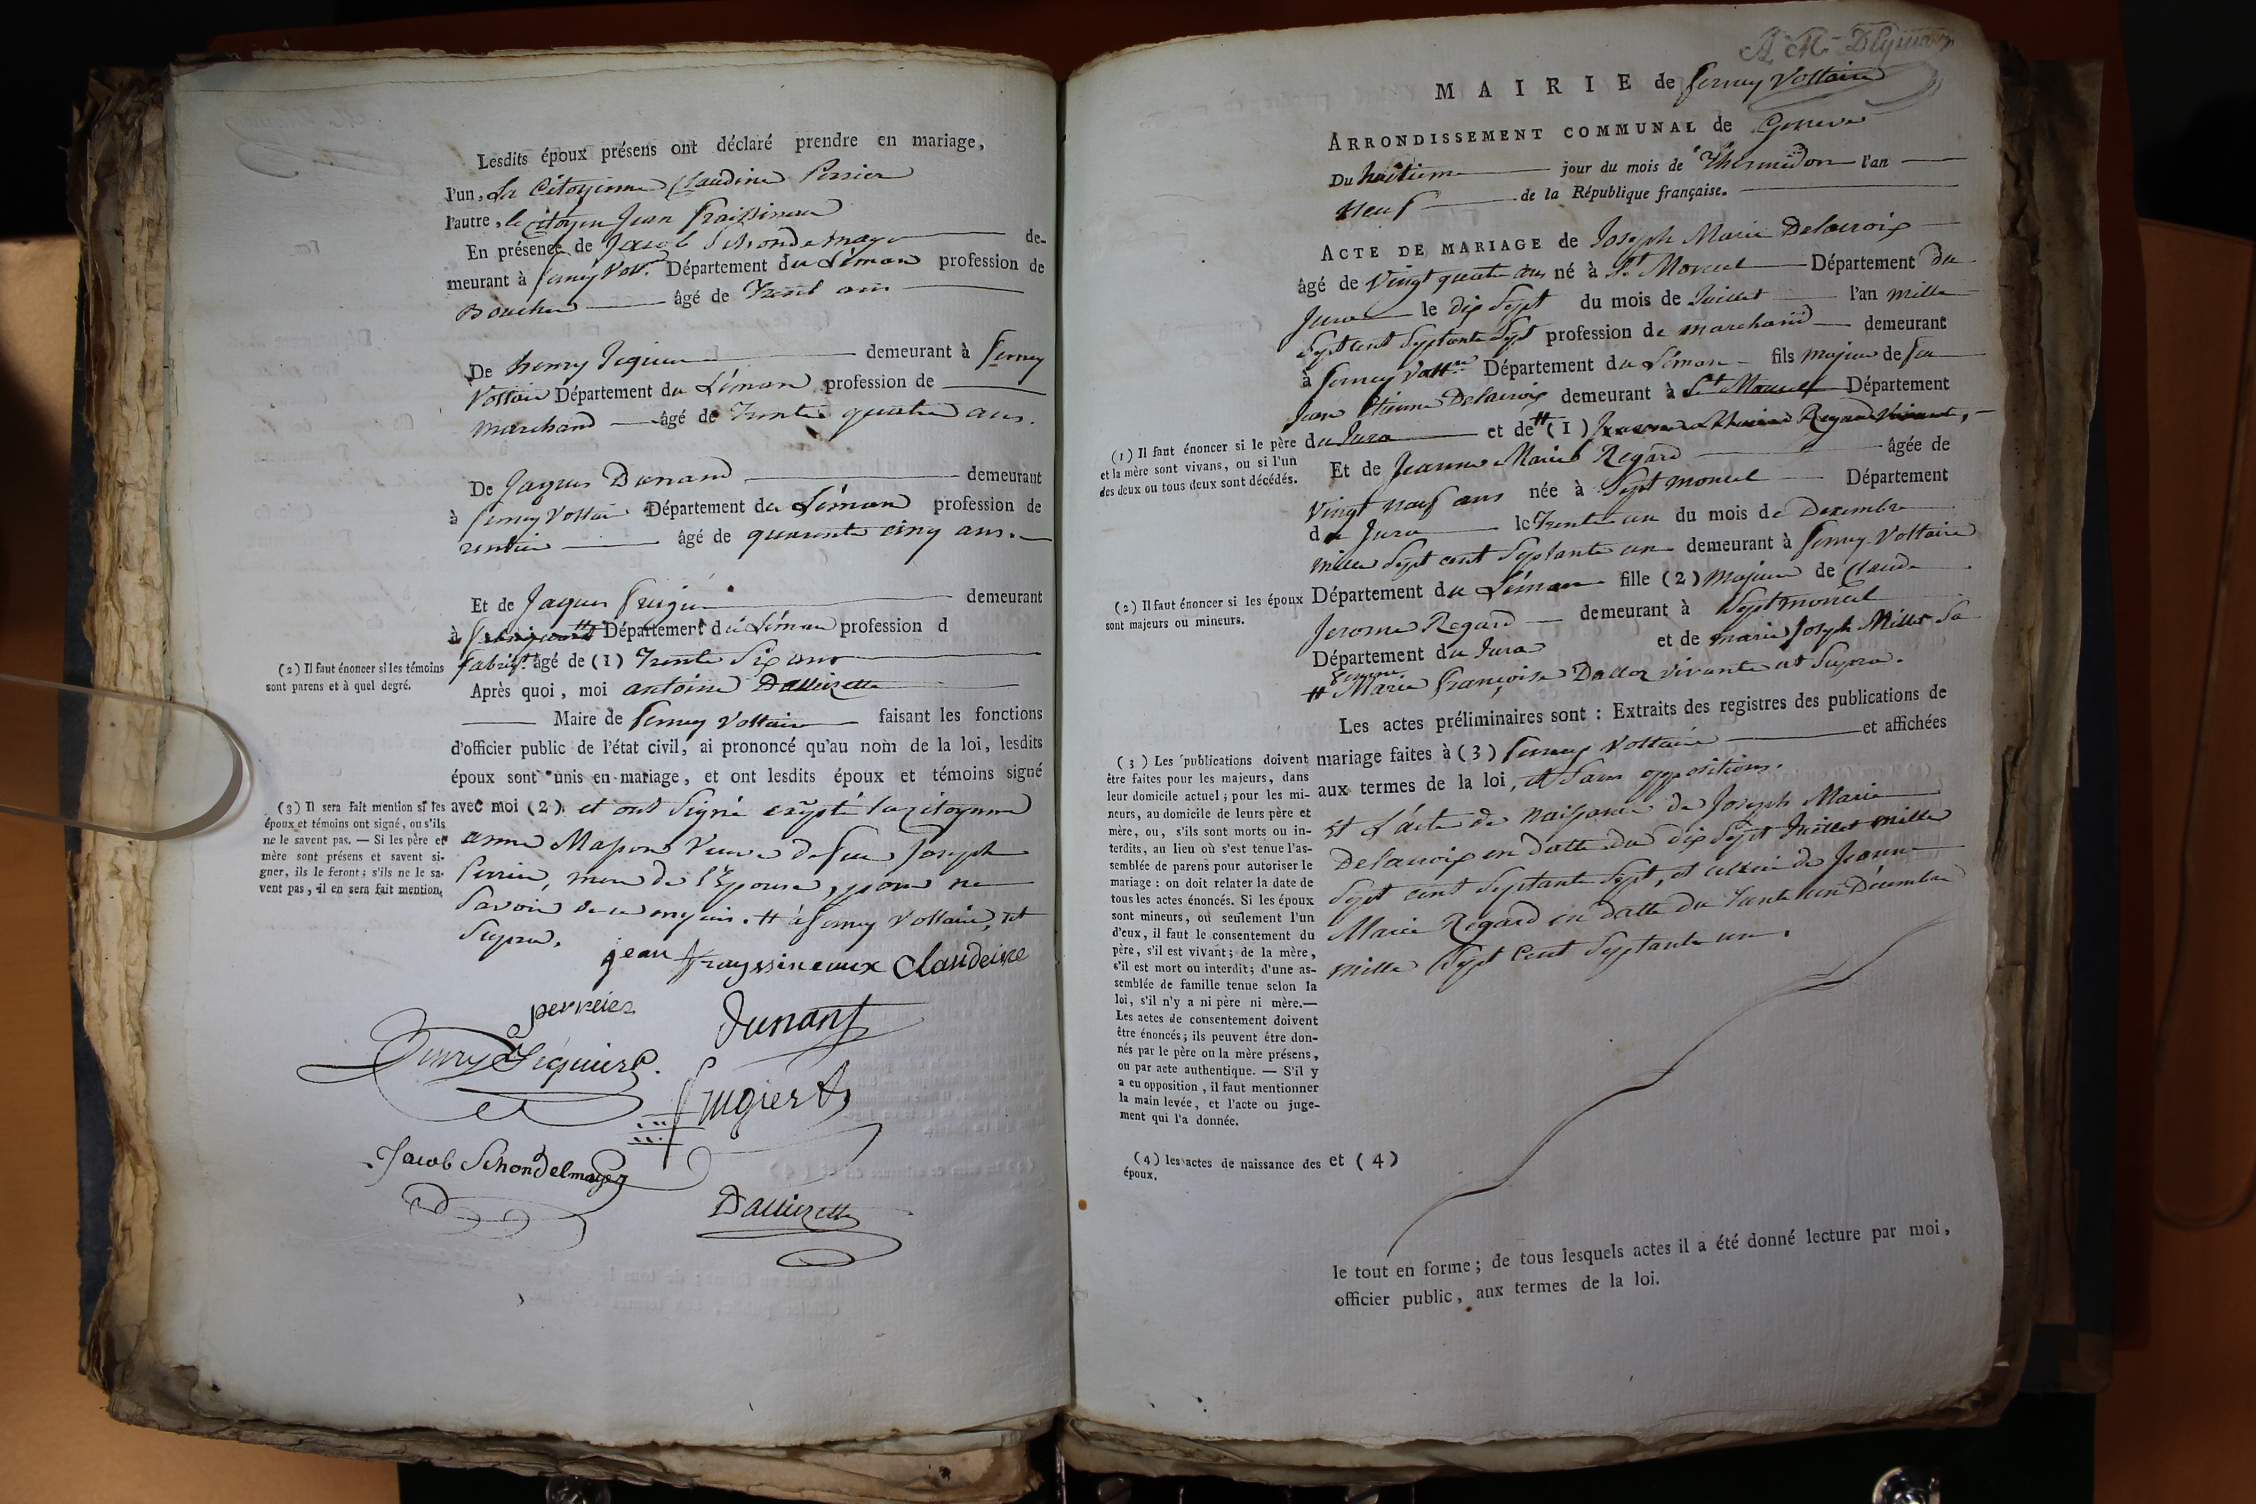 Lesdits époux présens ont déclaré prendre en mariage,
l'un, la Citoyenne Claudine Perrier
l'autre, le citoyen Jean fraissineau
En présence de Jacob Schondelmayer de-
meurant à ferney Vol.re Département du Léman profession de
Boucher âgé de Trente ans
De henry Siquier demeurant à ferney
Voltaire Département du Léman profession de
marchand âgé de Trente quatre ans.
De Jaques Dunand demeurant
à ferney Voltaire Département du Léman profession de
rentier âgé de quarente cinq ans.
Et de Jaques frugier demeurant
à Département du Léman profession d
(2) Il faut énoncer si les témoins
sont parens et à quel degré.
fabriqt. âgé de (1) Trente Six ans
Après quoi, moi antoine Dallizette
Maire de ferney Voltaire faisant les fonctions
d'officier public de l'état civil, ai prononcé qu'au nom de la loi, lesdits
époux sont unis en mariage, et ont lesdits époux et témoins signé
(3) Il sera fait mention si les
époux et témoins ont signé, ou s'ils
ne le savent pas. — Si les père et
mère sont présens et savent si-
gner, ils le feront; s'ils ne le sa-
vent pas, il en sera fait mention.
avec moi (2). et ont signé excepté la citoyenne
anne Masson Veuve de feu Joseph
Perrier, mere de l'Epouse, pour ne
Savoir de ce enquis. # à ferney Voltaire, ut
Supra.
jean frayssineaux Claudeine
perreier
Dunant
henry Siquier
frugier
Jacob Schondelmayer
Dallizette
MAIRIE de ferney Voltaire
ARRONDISSEMENT COMMUNAL de Geneve
Du huitieme jour du mois de Thermidor l'an
neuf de la République française.
ACTE DE MARIAGE de Joseph Marie Delacroix
âgé de Vingt quatre ans né à St. Morcel Département du
Jura le dix Sept du mois de Juillet l'an mille
Sept cent Septante Sept profession de marchand demeurant
à ferney Volt.re Département du Léman fils majeur de feu
Jean Etienne Delacroix demeurant à St. Morcel Département
(1) Il faut énoncer si le père
et la mère sont vivans, ou si l'un
des deux ou tous deux sont décédés.
du Jura et de # (1)
Et de Jeanne Marie Regard âgée de
Vingt neuf ans née à Septmoncel Département
du Jura le Trente un du mois de Decembre
mille Sept cent Septante un demeurant à ferney Voltaire
(2) Il faut énoncer si les époux
sont majeurs ou mineurs.
Département du Léman fille (2) majeure de Claude
Jerome Regard demeurant à Septmoncel
Département du Jura et de marie Joseph Millet Sa
femme
# Marie françoise Dalloz vivante ut Supra.
Les actes préliminaires sont : Extraits des registres des publications de
mariage faites à (3) ferney Voltaire et affichées
aux termes de la loi, et Sans oppositions.
(3) Les publications doivent
être faites pour les majeurs, dans
leur domicile actuel; pour les mi-
neurs, au domicile de leurs père et
mère, ou, s'ils sont morts ou in-
terdits, au lieu où s'est tenue l'as-
semblée de parens pour autoriser le
mariage : on doit relater la date de
tous les actes énoncés. Si les époux
sont mineurs, ou seulement l'un
d'eux, il faut le consentement du
père, s'il est vivant; de la mère,
s'il est mort ou interdit; d'une as-
semblée de famille tenue selon la
loi, s'il n'y a ni père ni mère.—
Les actes de consentement doivent
être énoncés; ils peuvent être don-
nés par le père ou la mère présens,
ou par acte authentique. — S'il y
a eu opposition, il faut mentionner
la main levée, et l'acte ou juge-
ment qui l'a donnée.
Et L'acte de naissance de Joseph Marie
Delacroix en datte du dix Sept Juillet mille
Sept cent Septante Sept, et celui de Jeanne
Marie Regard en datte du Trante un Décembre
mille Sept Cent Septante un.
(4) les actes de naissance des
époux.
et (4)
le tout en forme; de tous lesquels actes il a été donné lecture par moi,
officier public, aux termes de la loi.